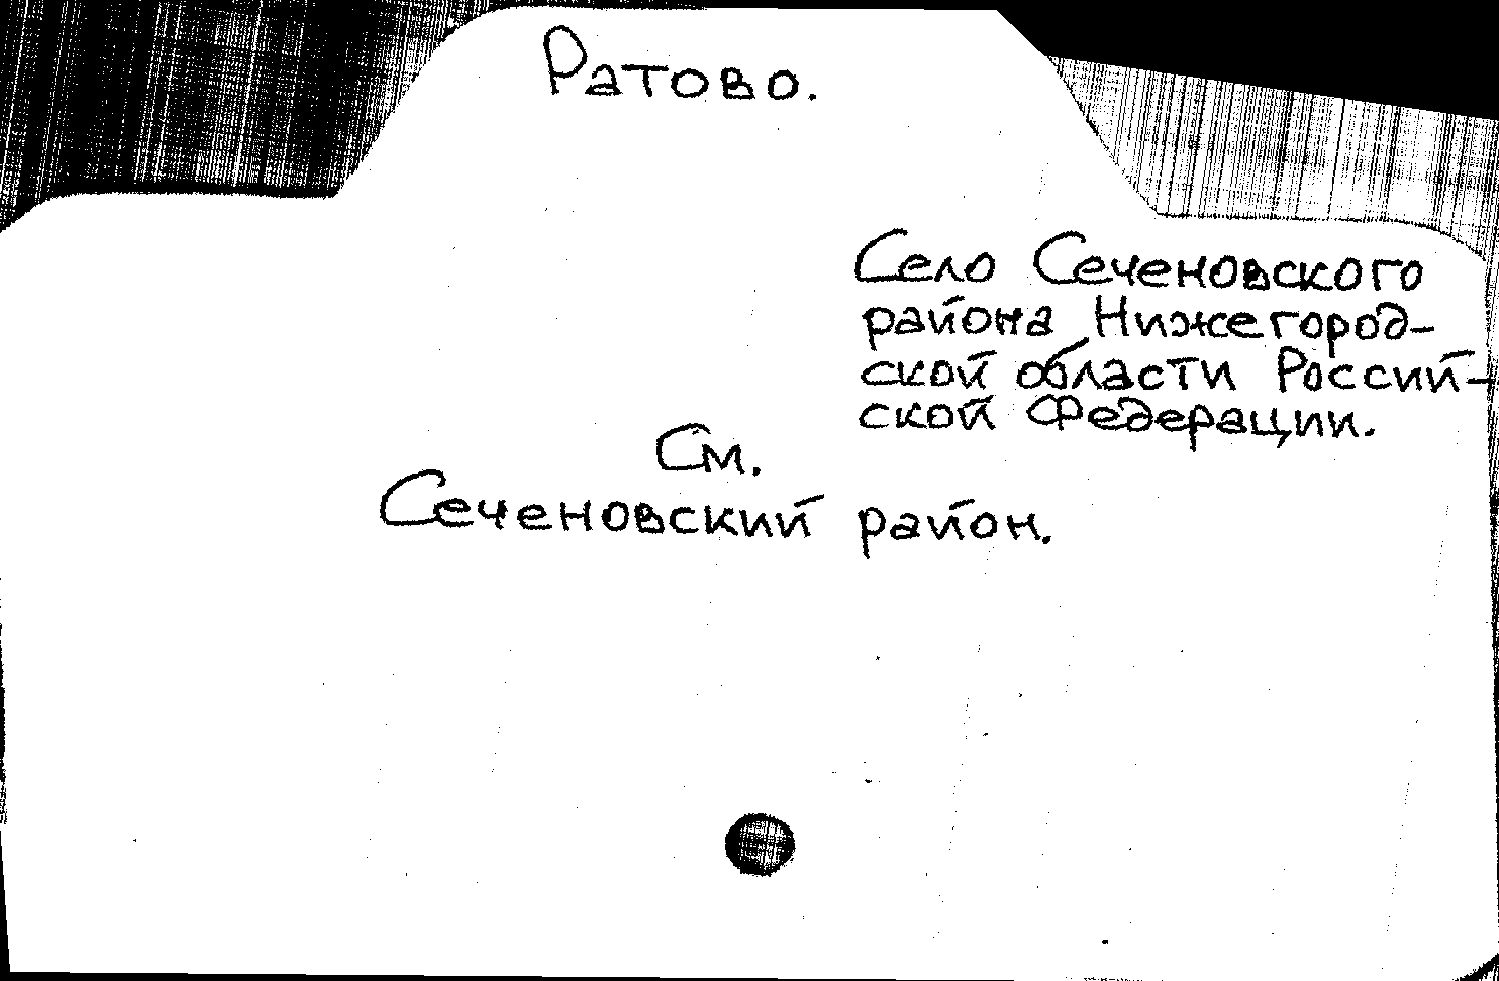 Ратово.
Село Сеченовского
района Нижегород-
ской области Россий-
ской Федерации.
См.
Сеченовский район.